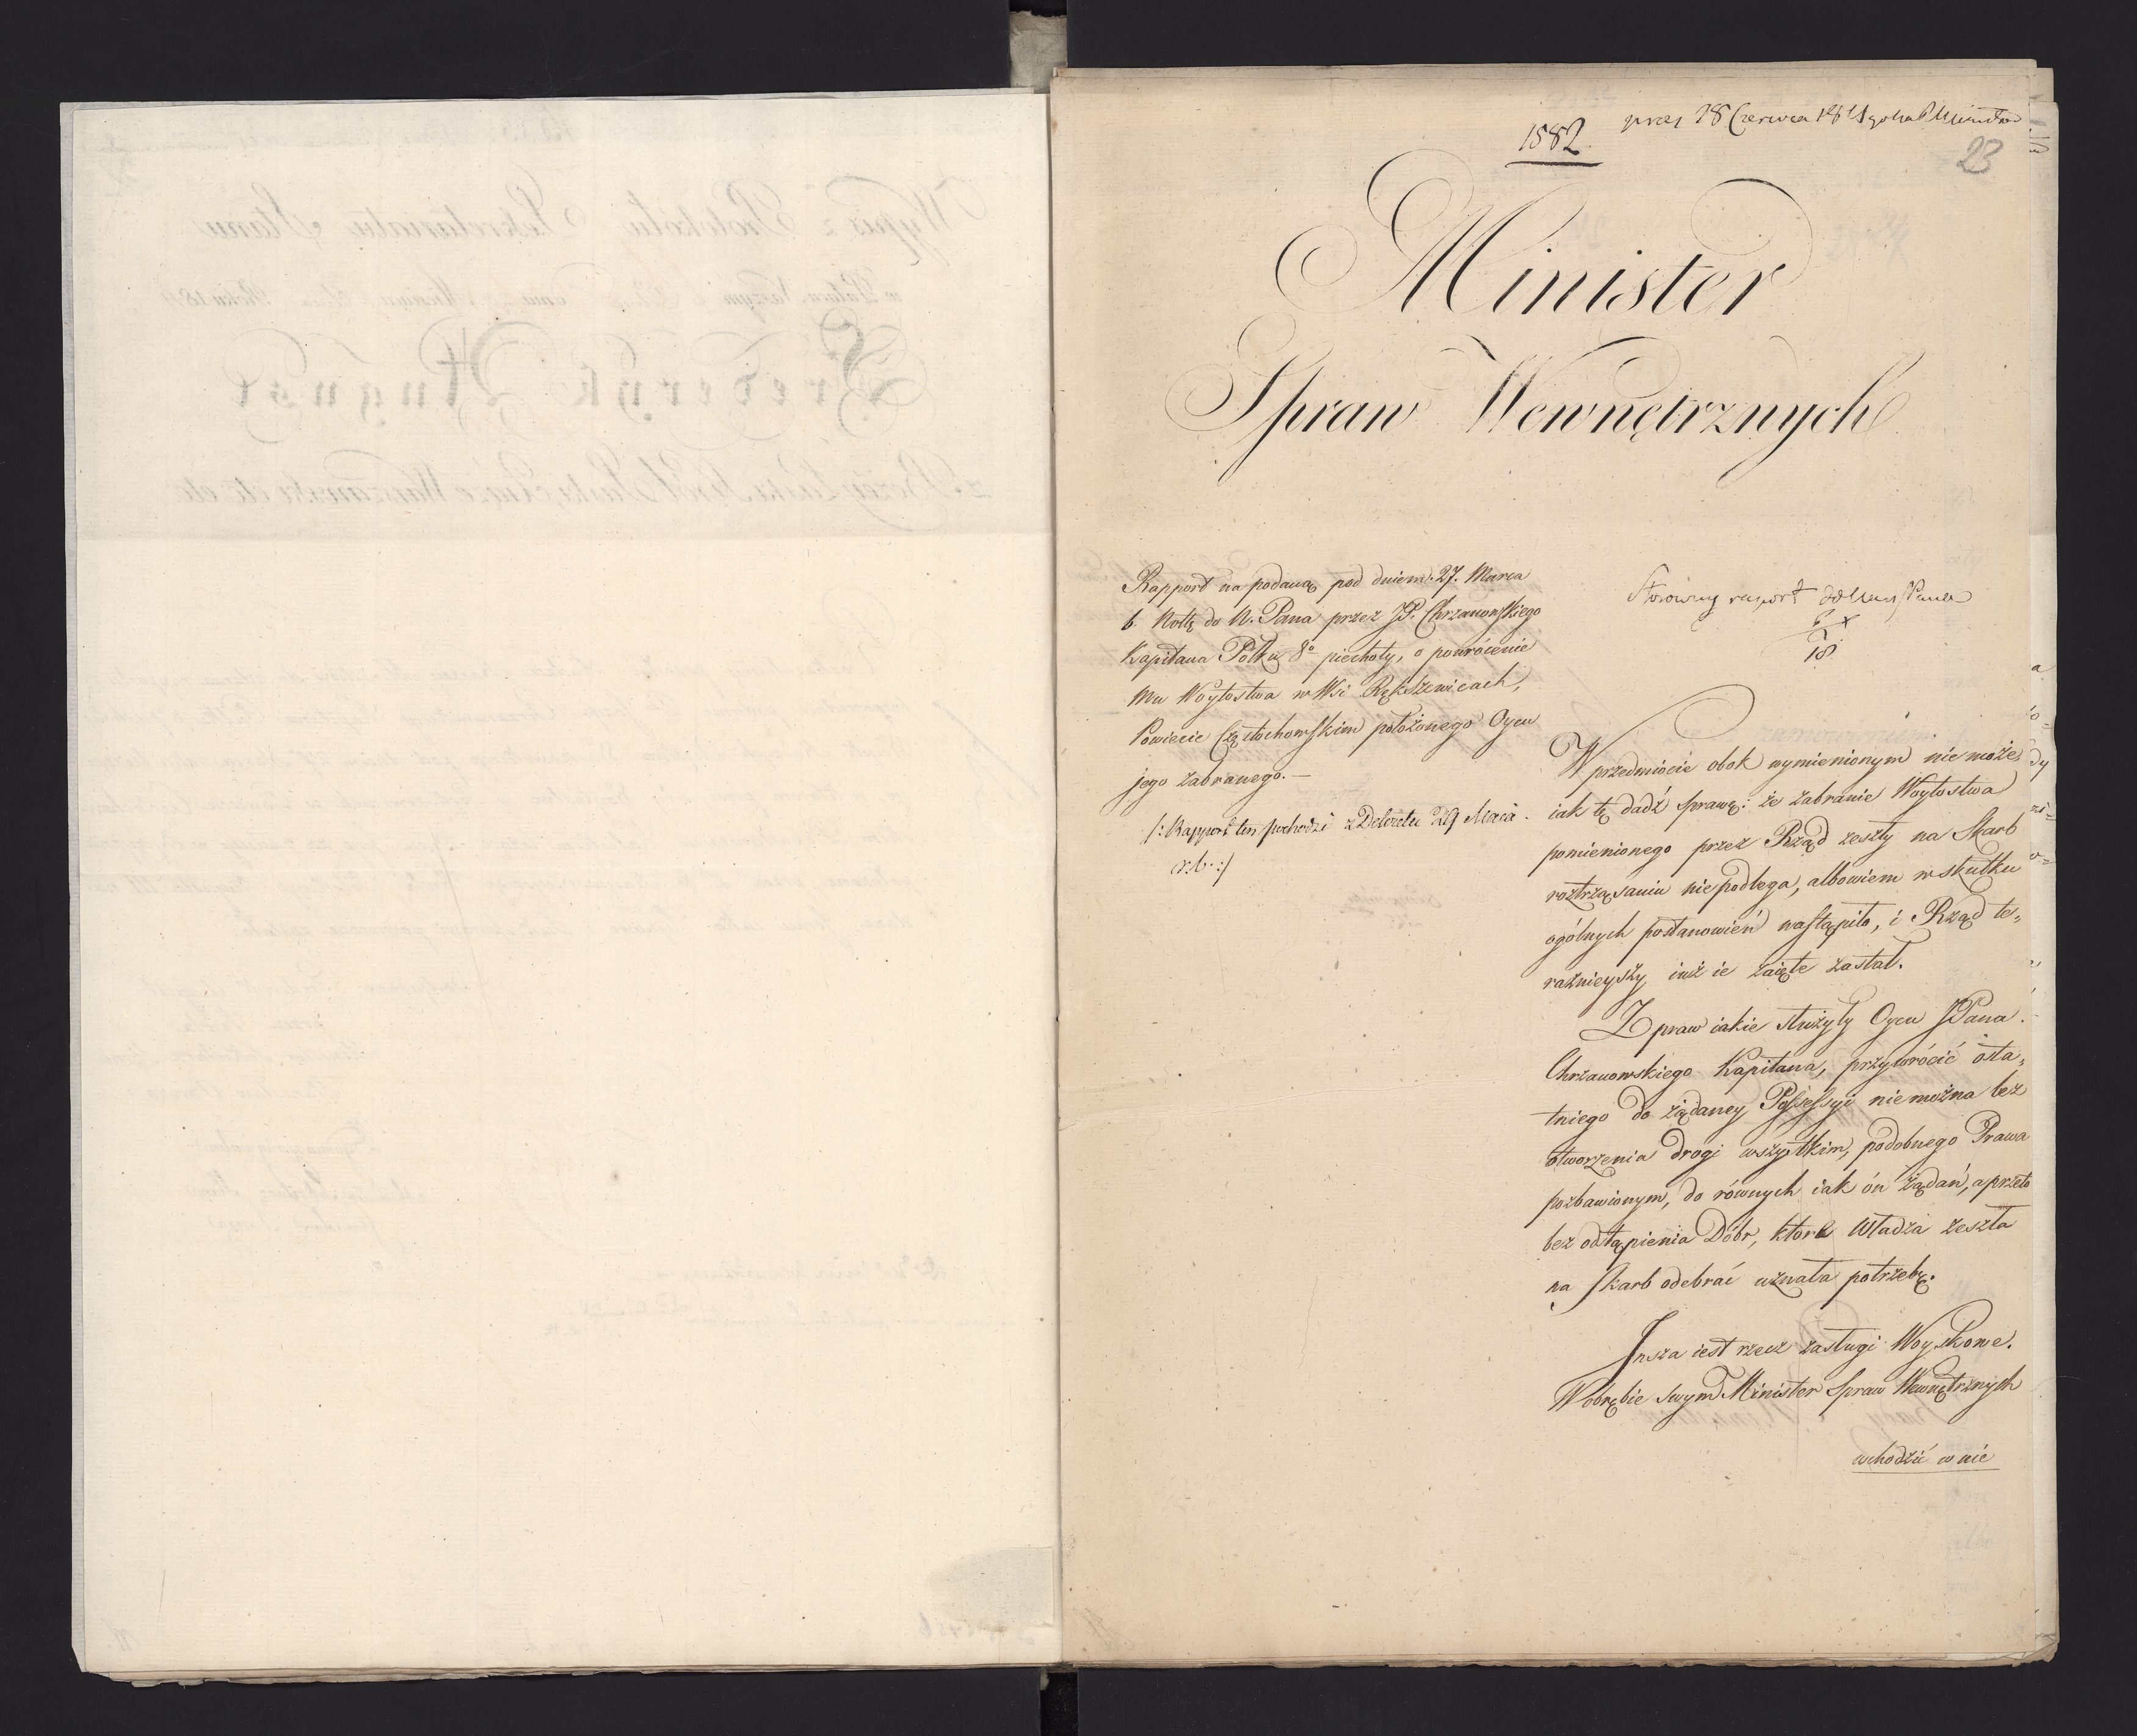 1582.
prez 18 Czerwca
23
Minister
Spraw Wewnętrznych
Rapport na podaną pod dniem 27. Marca
b. Nottę do N. Pana przez JP. Chrzanowskiego
Kapitana Pólku 8º piechoty, o powrócenie
mu Woytostwa w Wsi Rększewicach,
Powiecie Częstochowskim położonego Oycu
jego zabranego.—
/: Rapport ten pochodzi z Dekretu 29 Marca
r. b. :/
Stosowny raport do
6/X
18
W przedmiocie obok wymienionym nie może
iak tę dadź sprawę: że zabranie Woytostwa
pomienionego przez Rząd zeszły na Skarb
roztrząsaniu nie podlega, albowiem w skutku
ogólnych postanowień nastąpiło, i Rząd te„
raźnieyszy iuż ie zaięte zastał.
Z praw iakie służyły Oycu JPana
Chrzanowskiego Kapitana, przywrócić osta„
tniego do żądaney Possessyi nie można bez
otworzenia drogi wszystkim, podobnego Prawa
pozbawionym, do równych iak ón żądań, a przeto
bez odstąpienia Dóbr, które Władza zeszła
na Skarb odebrać uznała potrzebę.
Insza iest rzecz zasługi Woyskowe.
W obrębie swym Minister Spraw Wewnętrznych
wchodzić w nie